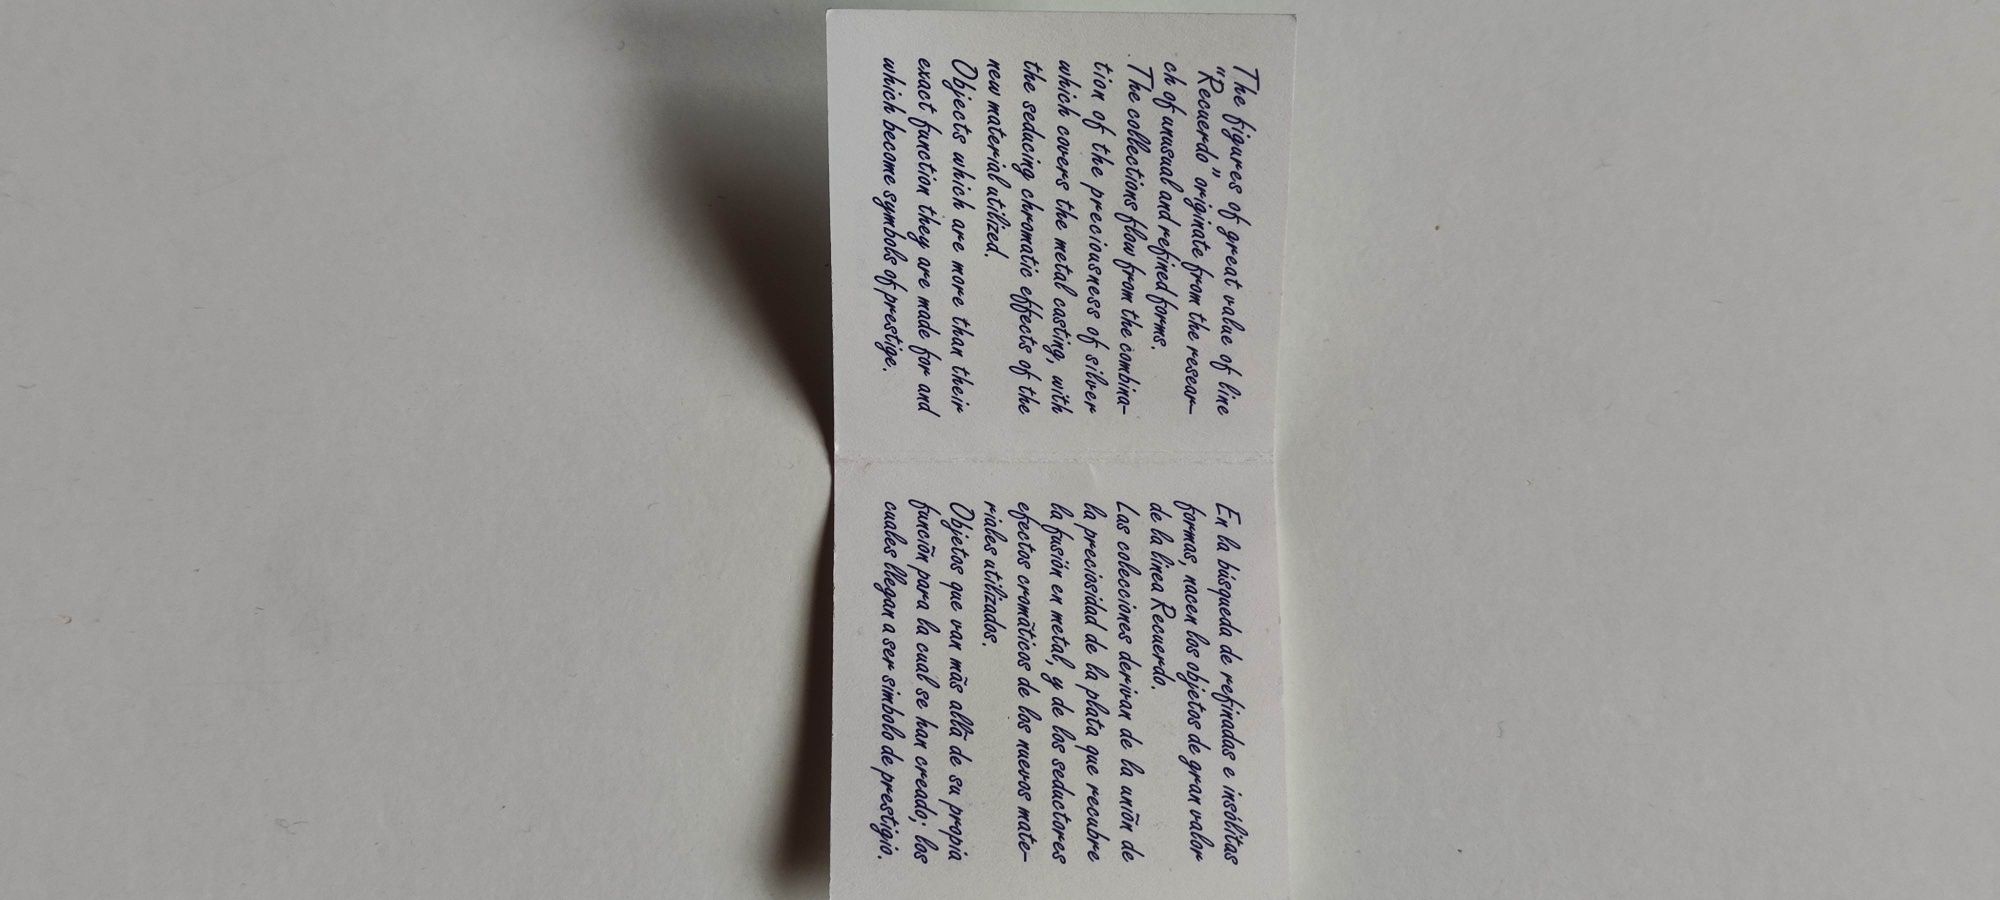 The figures of great value of line
"Recuerdo" originate from the resear-
ch of unusual and refined forms.
.The collections flow from the combina-
tion of the preciousness of silver
which covers the metal casting, with
the seducing chromatic effects of the
new material utilized.
Objects which are more than their
exact function they are made for and
which become symbols of prestige.
En la búsqueda de refinadas e insólitas
formas, nacen los objetos de gran valor
de la línea Recuerdo.
Las colecciones derivan de la uniõn de
la preciosidad de la plata que recubre
la fusión en metal, y de los seductores
efectos cromãticos de los nuevos mate-
riales utilizados.
Objetos que van mãs allã de su propia
funciõn para la cual se han creado; los
cuales llegan a ser simbolo de prestigio.